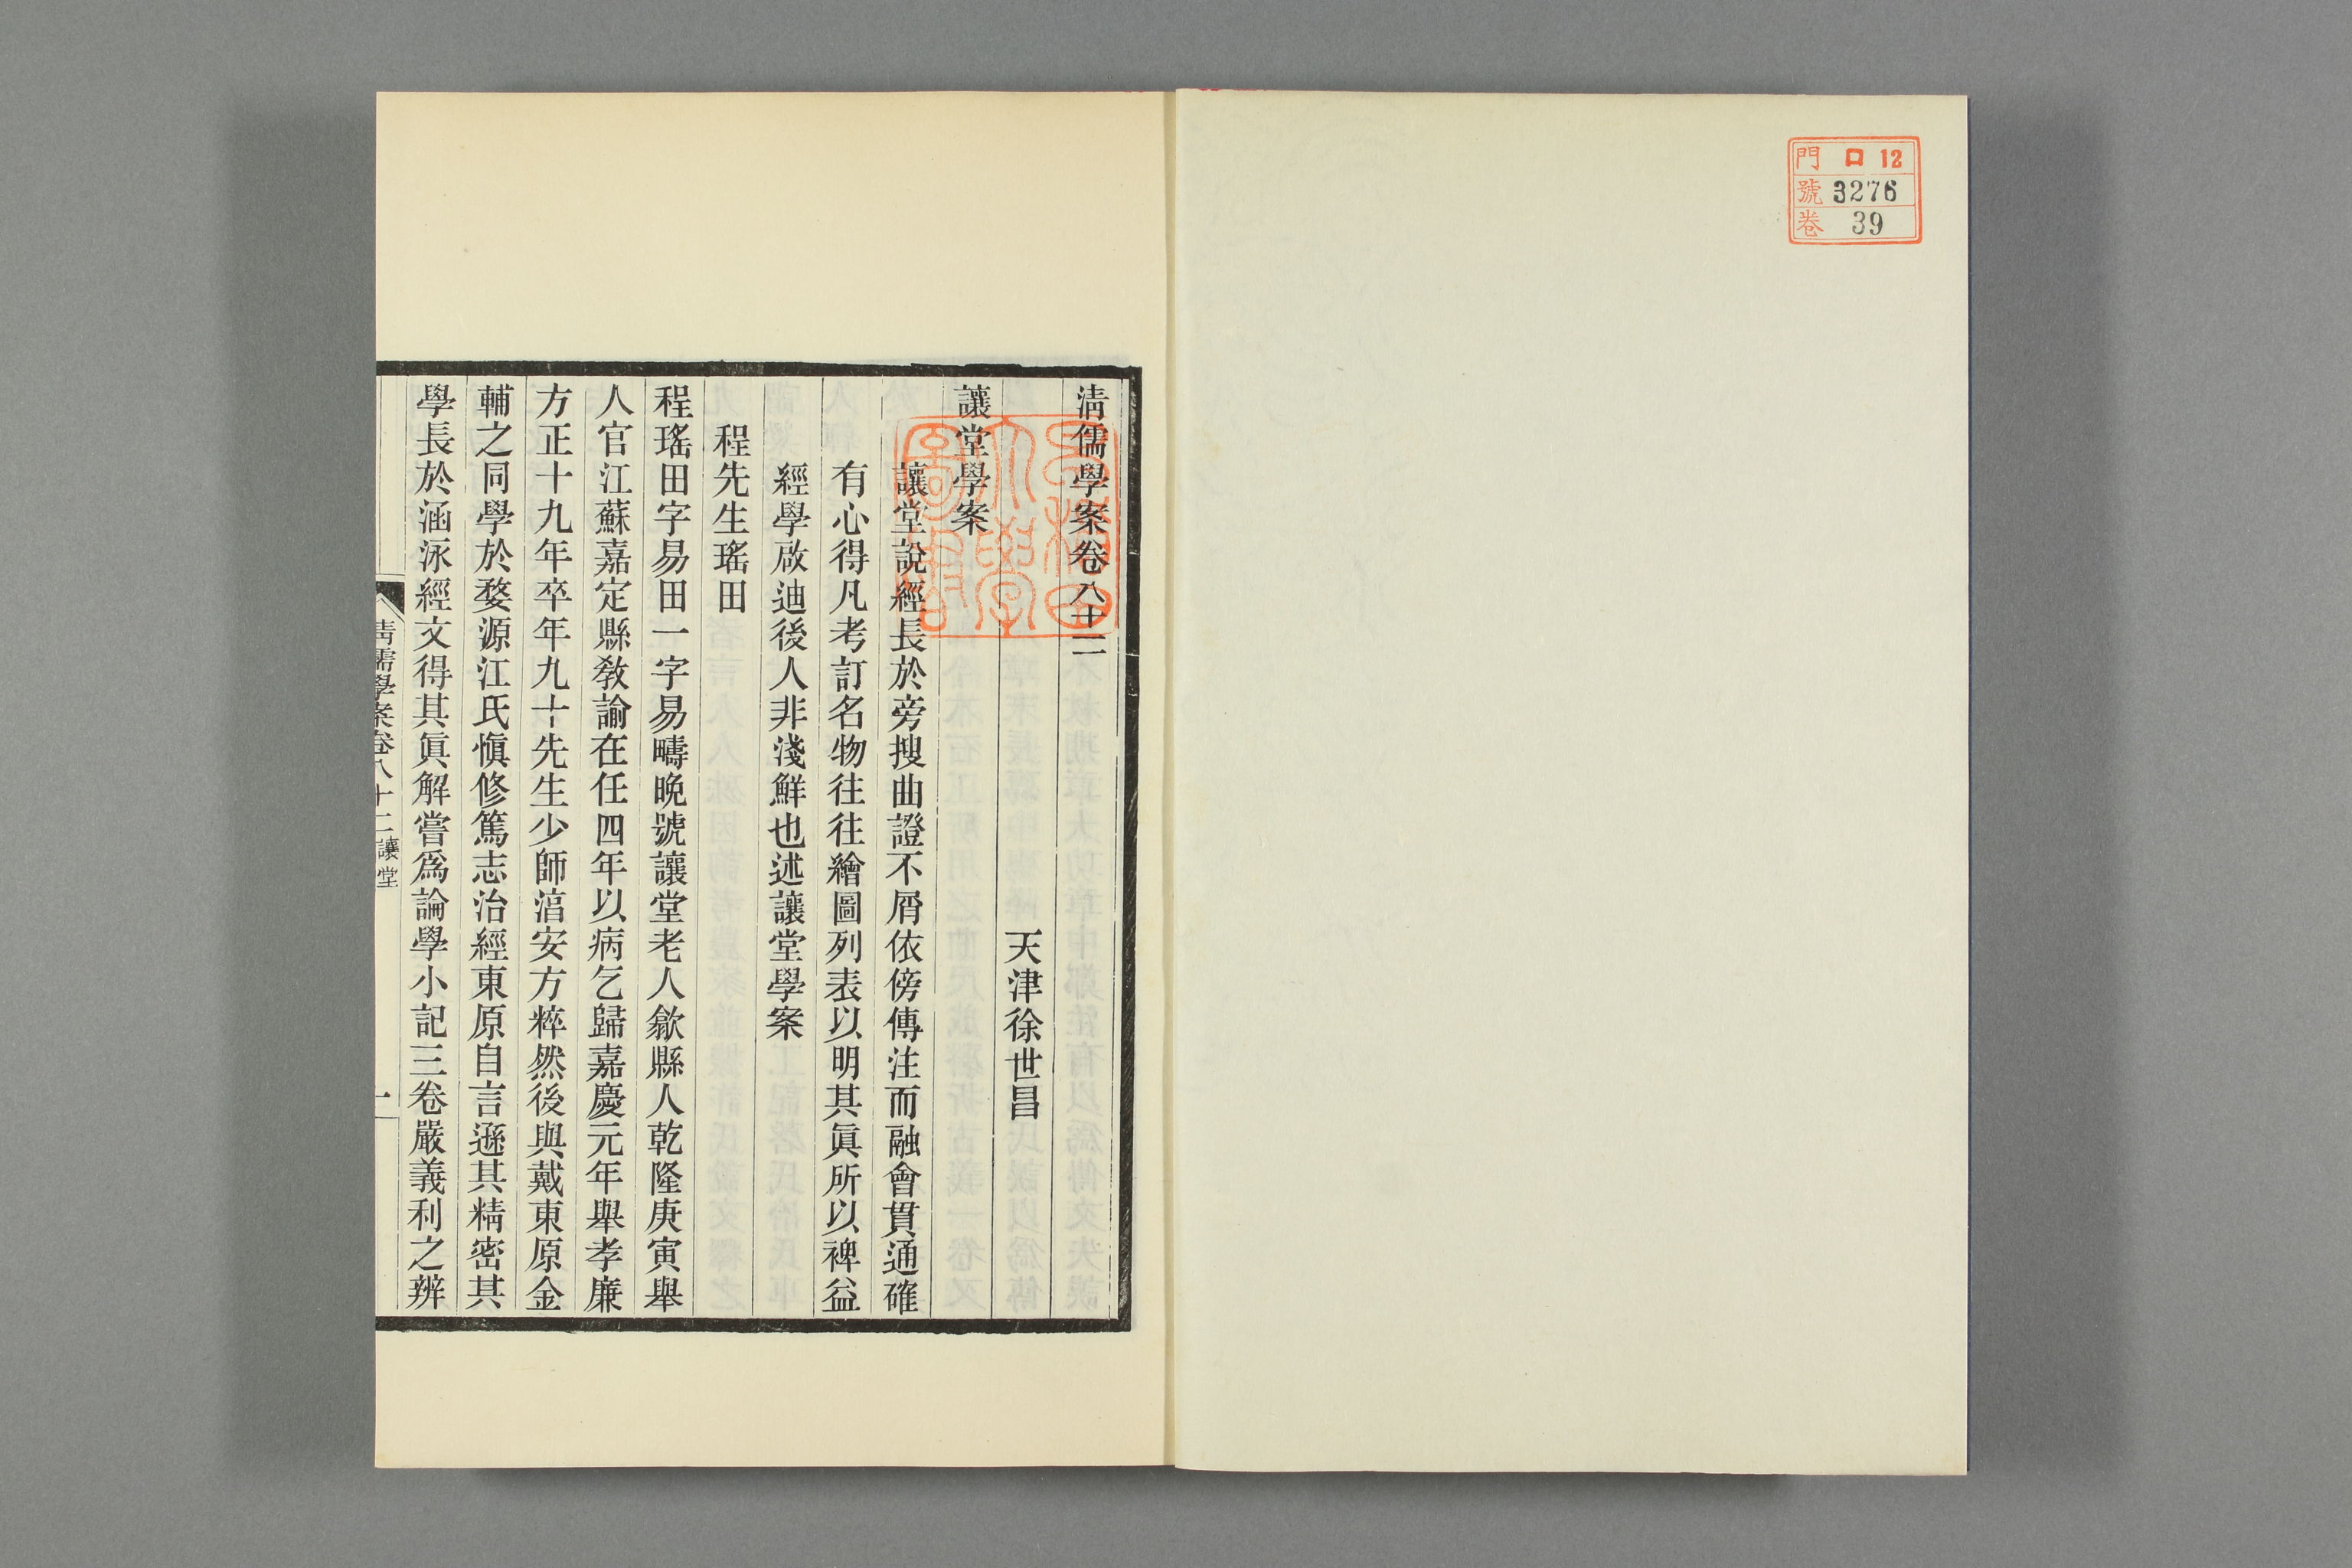 門 口 12
號 3276
卷 39
淸儒學案卷八十二
天津徐世昌
讓堂學案
讓堂說經長於旁搜曲證不屑依傍傳注而融會貫通確
有心得凡考訂名物往往繪圖列表以明其眞所以裨益
經學啟迪後人非淺鮮也述讓堂學案
程先生瑤田
程瑤田字易田一字易疇晚號讓堂老人歙縣人乾隆庚寅舉
人官江蘇嘉定縣敎諭在任四年以病乞歸嘉慶元年舉孝廉
方正十九年卒年九十先生少師淳安方粹然後與戴東原金
輔之同學於婺源江氏愼修篤志治經東原自言遜其精密其
學長於涵泳經文得其眞解嘗爲論學小記三卷嚴義利之辨
淸儒學案卷八十二 讓堂
一
早稻田大學圖書